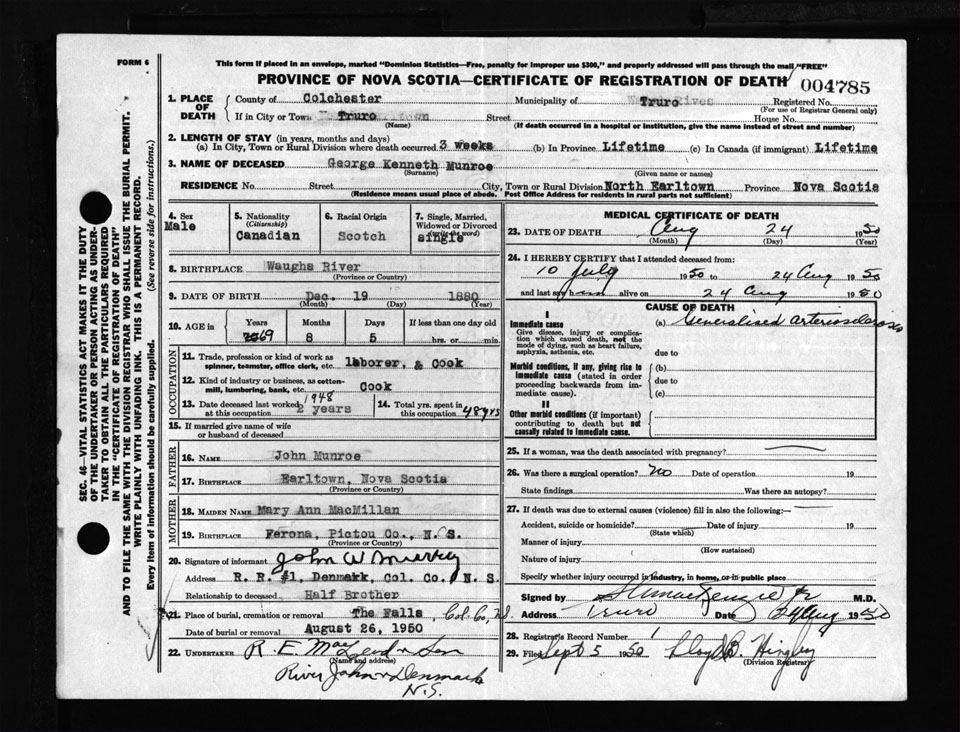 FORM 6
This form if placed in an envelope, marked "Dominion Statistics—Free, penalty for improper use $300," and properly addressed will pass through the mail "FREE"
PROVINCE OF NOVA SCOTIA—CERTIFICATE OF REGISTRATION OF DEATH 004785
1. PLACE OF DEATH
County of Colchester Municipality of Truro Registered No.
(For use of Registrar General only)
If in City or Town Truro Street House No.
(Name) (If death occurred in a hospital or institution, give the name instead of street and number)
2. LENGTH OF STAY (in years, months and days)
(a) In City, Town or Rural Division where death occurred 3 weeks (b) In Province Lifetime (c) In Canada (if immigrant) Lifetime
3. NAME OF DECEASED George Kenneth Munroe
(Surname) (Given name or names)
RESIDENCE No. Street City, Town or Rural Division North Earltown Province Nova Scotia
(Residence means usual place of abode. Post Office Address for residents in rural parts not sufficient)
4. Sex Male
5. Nationality (Citizenship) Canadian
6. Racial Origin Scotch
7. Single, Married, Widowed or Divorced (write the word) single
8. BIRTHPLACE Waughs River
(Province or Country)
9. DATE OF BIRTH Dec. 19 1880
(Month) (Day) (Year)
10. AGE in Years Months Days If less than one day old
69 8 5 hrs. or min.
OCCUPATION
11. Trade, profession or kind of work as spinner, teamster, office clerk, etc. laborer, & Cook
12. Kind of industry or business, as cotton-mill, lumbering, bank, etc. Cook
13. Date deceased last worked at this occupation 1948 2 years
14. Total yrs. spent in this occupation 48 yrs
15. If married give name of wife or husband of deceased
FATHER
16. NAME John Munroe
17. BIRTHPLACE Earltown, Nova Scotia
(Province or Country)
MOTHER
18. MAIDEN NAME Mary Ann MacMillan
19. BIRTHPLACE Ferona, Pictou Co., N. S.
(Province or Country)
20. Signature of informant John W Murray
Address R. R. #1, Denmark, Col. Co., N. S.
Relationship to deceased Half Brother
21. Place of burial, cremation or removal The Falls, Col. Co, N.S.
Date of burial or removal August 26, 1950
22. UNDERTAKER R. E. MacLeod & Son
(Name and address)
River John & Denmark
N.S.
MEDICAL CERTIFICATE OF DEATH
23. DATE OF DEATH Aug 24 1950
(Month) (Day) (Year)
24. I HEREBY CERTIFY that I attended deceased from:
10 July 1950 to 24 Aug 1950
and last saw him alive on 24 Aug 1950
CAUSE OF DEATH
I
Immediate cause
Give disease, injury or complication which caused death, not the mode of dying, such as heart failure, asphyxia, asthenia, etc.
(a) Generalised arteriosclerosis
due to
Morbid conditions, if any, giving rise to immediate cause (stated in order proceeding backwards from immediate cause).
(b)
due to
(c)
II
Other morbid conditions (if important) contributing to death but not causally related to immediate cause.
25. If a woman, was the death associated with pregnancy?
26. Was there a surgical operation? no Date of operation 19
State findings Was there an autopsy?
27. If death was due to external causes (violence) fill in also the following:—
Accident, suicide or homicide? Date of injury 19
(State which)
Manner of injury
(How sustained)
Nature of injury
Specify whether injury occurred in industry, in home, or in public place
Signed by M.D.
Address Truro Date 24 Aug 1950
28. Registrar's Record Number 1
29. Filed Sept 5 1950 Lloyd B.
(Division Registrar)
SEC. 46—VITAL STATISTICS ACT MAKES IT THE DUTY
OF THE UNDERTAKER OR PERSON ACTING AS UNDER-
TAKER TO OBTAIN ALL THE PARTICULARS REQUIRED
IN THE "CERTIFICATE OF REGISTRATION OF DEATH"
AND TO FILE THE SAME WITH THE DIVISION REGISTRAR WHO SHALL ISSUE THE BURIAL PERMIT.
WRITE PLAINLY WITH UNFADING INK. THIS IS A PERMANENT RECORD.
Every item of information should be carefully supplied. (See reverse side for instructions.)